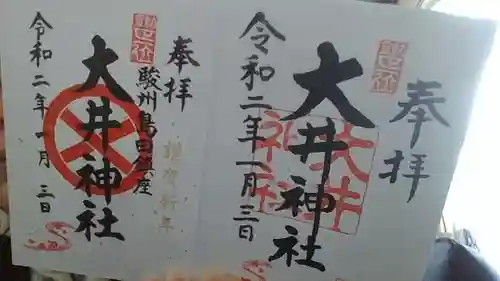 奉拝
大井神社
令和二年一月三日
奉拝
駿州島田鎮座
謹賀新年
大井神社
令和二年一月三日